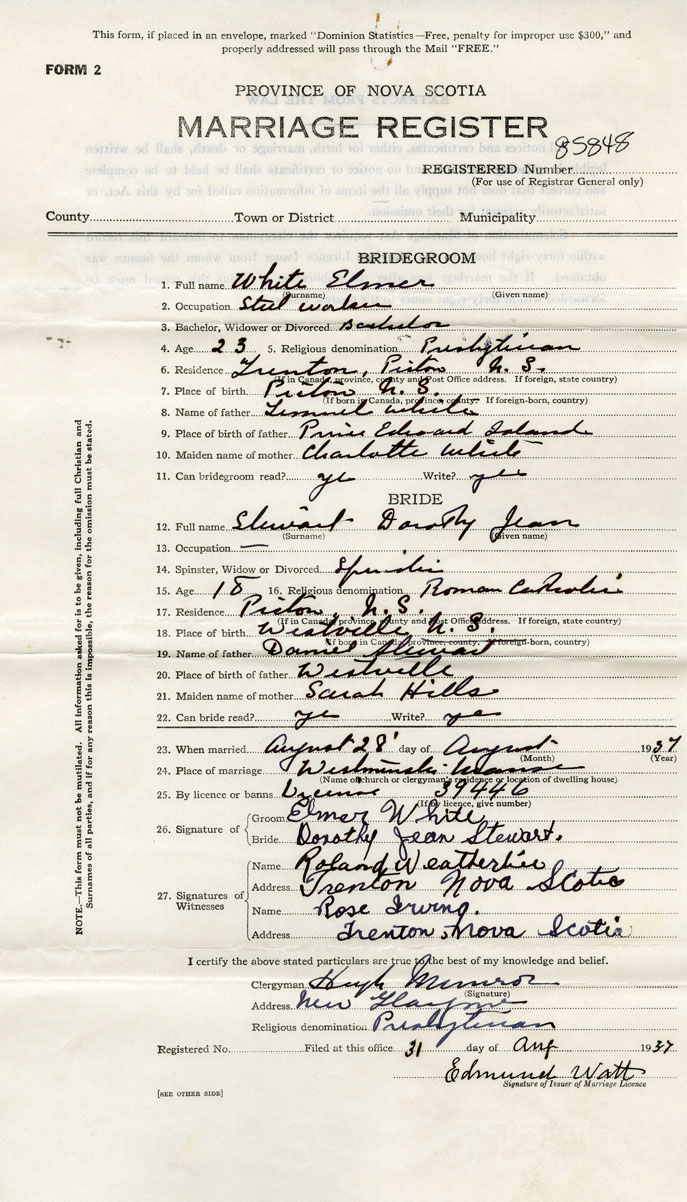 This form, if placed in an envelope, marked "Dominion Statistics—Free, penalty for improper use $300," and
properly addressed will pass through the Mail "FREE."
FORM 2
PROVINCE OF NOVA SCOTIA
MARRIAGE REGISTER
85848
REGISTERED Number
(For use of Registrar General only)
County Town or District Municipality
BRIDEGROOM
1. Full name White Elmer
(Surname) (Given name)
2. Occupation Steel worker
3. Bachelor, Widower or Divorced Bachelor
4. Age 23 5. Religious denomination Presbyterian
6. Residence Trenton, Pictou N. S.
(If in Canada, province, county and Post Office address. If foreign, state country)
7. Place of birth Pictou N. S.
(If born in Canada, province, county. If foreign-born, country)
8. Name of father Lemuel White
9. Place of birth of father Prince Edward Island
10. Maiden name of mother Charlotte White
11. Can bridegroom read? yes Write? yes
BRIDE
12. Full name Stewart Dorothy Jean
(Surname) (Given name)
13. Occupation —
14. Spinster, Widow or Divorced Spinster
15. Age 18 16. Religious denomination Roman Catholic
17. Residence Pictou, N. S.
(If in Canada, province, county and Post Office address. If foreign, state country)
18. Place of birth Westville N. S.
(If born in Canada, province, county. If foreign-born, country)
19. Name of father Daniel Stewart
20. Place of birth of father Westville
21. Maiden name of mother Sarah Hills
22. Can bride read? yes Write? yes
23. When married August 28' day of August 1937
(Month) (Year)
24. Place of marriage Westminster Manse
(Name of church or clergyman's residence or location of dwelling house)
25. By licence or banns License 39446
(If by licence, give number)
26. Signature of Groom Elmer White
Bride Dorothy Jean Stewart.
27. Signatures of Witnesses
Name Roland Weatherbie
Address Trenton Nova Scotia
Name Rose Irving.
Address Trenton, Nova Scotia
I certify the above stated particulars are true to the best of my knowledge and belief.
Clergyman Hugh Munroe
(Signature)
Address New Glasgow
Religious denomination Presbyterian
Registered No. Filed at this office 31 day of Aug 1937
Edmund Watt
Signature of Issuer of Marriage Licence
[SEE OTHER SIDE]
NOTE.—This form must not be mutilated. All information asked for is to be given, including full Christian and
Surnames of all parties, and if for any reason this is impossible, the reason for the omission must be stated.